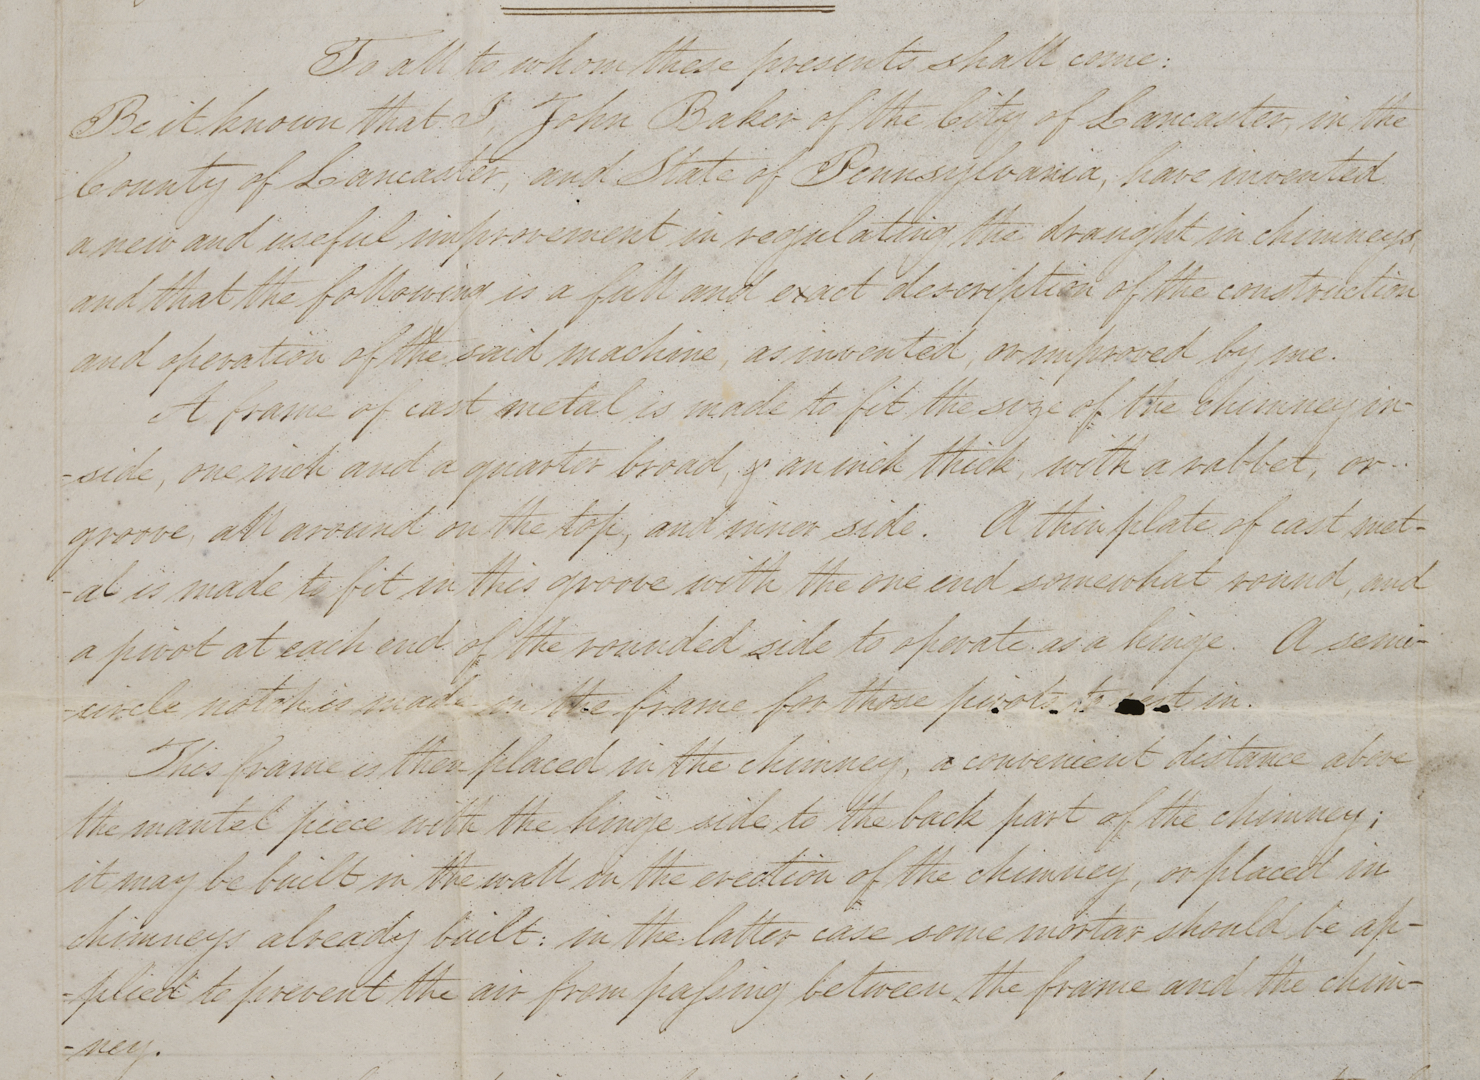 To all to whom these presents shall come:
Be it known that I, John Baker of the City of Lancaster, in the
County of Lancaster, and State of Pennsylvania, have invented
a new and useful improvement in regulating the draught in chimneys,
and that the following is a full and exact description of the construction
and operation of the said machine, as invented, or improved by me.
A frame of cast metal is made to fit the size of the chimney in-
-side, one inch and a quarter broad, & an inch thick, with a rabbet, or
groove, all around on the top, and inner side. A thin plate of cast met-
-al is made to fit in this groove with the one end somewhat round, and
a pivot at each end of the rounded side to operate as a hinge. A semi-
-circle notch is made in the frame for those pivots to rest in.
This frame is then placed in the chimney, a convenient distance above
the mantel piece with the hinge side to the back part of the chimney;
it may be built in the wall in the erection of the chimney, or placed in
chimneys already built: in the latter case some mortar should be ap-
-plied to prevent the air from passing between the frame and the chim-
-ney.